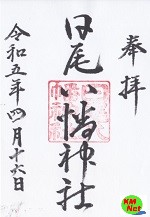 奉拝
日尾八幡神社
令和五年四月十六日
KM
Net